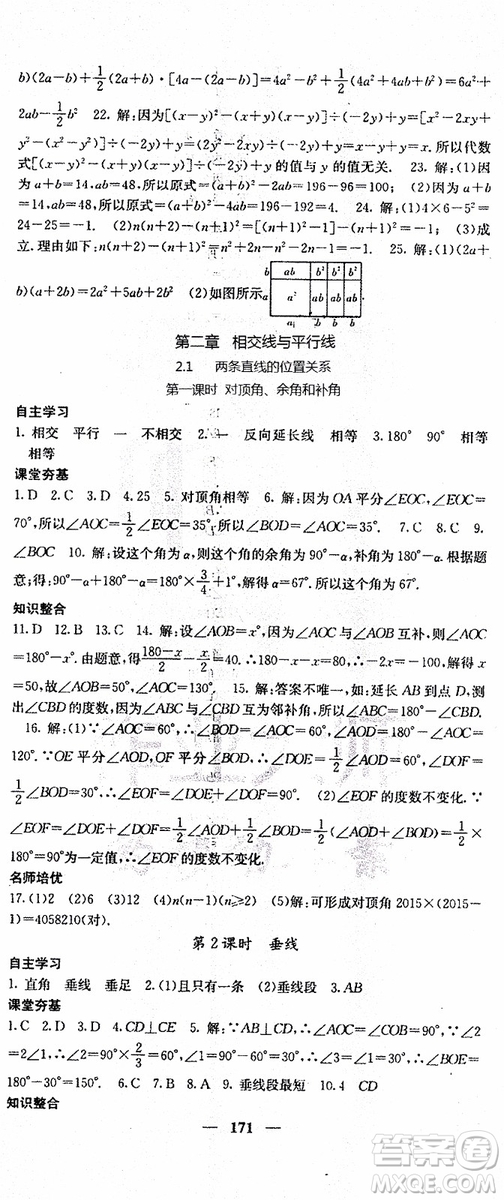 b)(2a-b)+1/2(2a+b)·[4a-(2a-b)]=4a²-b²+1/2(4a+2b)(2a+b)=6a²+
2ab-1/2b² 22. 解:因为[(x-y)²-(x+y)(x-y)]÷(-2y)+y=[x²-2xy+
y²-(x²-y²)]÷(-2y)+y=(2y²-2xy)÷(-2y)+y=-y+x+y=x.所以代数
式[(x-y)²-(x+y)(x-y)]÷(-2y)+y的值与y的值无关. 23. 解:(1)因
为a+b=14,ab=48,所以原式=(a+b)²-2ab=196-96=100; (2)因为a+b
=14,ab=48,所以原式=(a+b)²-4ab=196-192=4. 24. 解:(1)4×6-5²=
24-25=-1 (2)n(n+2)-(n+1)²=-1 (3)成
立.理由如下:n(n+2)-(n+1)²=n²+2n-n²-2n-1=-1. 25. 解:(1)(2a+
b)(a+2b)=2a²+5ab+2b² (2)如图所示
b ab b² b²
a a² ab ab
a b b
第二章 相交线与平行线
2.1 两条直线的位置关系
第一课时 对顶角、余角和补角
自主学习
1. 相交 平行 一 不相交 2. 一 反向延长线 相等 3. 180° 90° 相等
相等
课堂夯基
1. D 2. C 3. C 4. 25 5. 对顶角相等 6. 解:因为OA平分∠EOC,∠EOC=
70°,所以∠AOC=1/2∠EOC=35°,所以∠BOD=∠AOC=35° 7. C 8. C 9.
∠BOC 10. 解:设这个角为α,则这个角的余角为90°-α,补角为180°-α.根据题
意;得:90°-α+180°-α=180°×3/4+1°,解得:α=67°.所以这个角为67°.
知识整合
11. D 12. B 13. C 14. 解:设∠AOB=x°,因为∠AOC与∠AOB互补,则∠AOC
=180°-x°.由题意,得(180-x)/2-x/2=40.所以180-x-x=80,所以-2x=-100,解得x
=50,故∠AOB=50°,∠AOC=130° 15. 解:答案不唯一,如:延长AB到点D,测
出∠CBD的度数即可得出∠ABC的度数,因为∠ABC与∠CBD互为邻补角,所以
∠ABC=180°-∠CBD. 16. 解:(1)∵∠AOC=60°,∴∠BOC=180°-∠AOC=
120°.∵OE平分∠AOD,OF平分∠BOD,∴∠DOE=1/2∠AOD=60°,∠DOF=
1/2∠BOD=30°,∴∠EOF=∠DOE+∠DOF=90° (2)不变化.∵∠EOF=∠DOE
+∠DOF=1/2∠AOD+1/2∠BOD=1/2(∠AOD+∠BOD)=1/2∠AOB=1/2×
180°=90°为一定值,∴∠EOF的度数不变化.
名师培优
17. (1)2 (2)6 (3)12 (4)n(n-1)(n≥2) (5)解:可形成对顶角2015×(2015-
1)=4058210(对).
第2课时 垂线
自主学习
1. 直角 垂线 垂足 2. (1)且只有一条 (2)垂线段 3. AB
课堂夯基
1. C 2. D 3. D 4. CD⊥CE 5. 解:∵AB⊥CD,∴∠AOC=∠COB=90°,∵∠2
=2∠1,∴∠2=90°×2/3=60°,∴∠1=90°-60°=30°.∵∠BOF=∠1,∴∠BOE=
180°-30°=150°. 6. C 7. B 8. A 9. 垂线段最短 10. 4 CD
知识整合
— 171 —